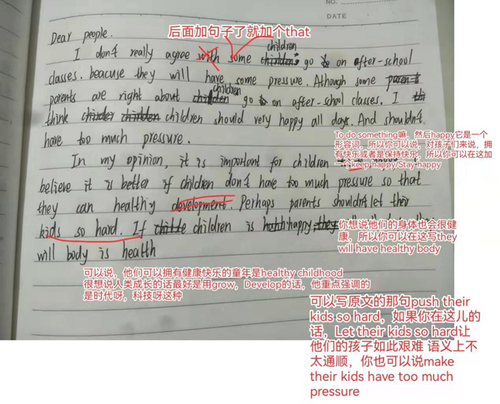 NO.
DATE
后面加句子了就加个that
Dear people.
I don't really agree with some children go to on after-school
classes. beacuse they will have some pressure. Athough some
parents are right about children go to on after-shcol classes. I
think children should very happy all days. And shouldn't
have too much pressure.
To do something嘛，然后happy它是一个
形容词，所以你可以说，对孩子们来说，拥
有快乐或者是保持快乐，所以你可以在这加
keep happy/Stay happy
In my opinion, it is important for children
believe it is better if children don't have too much pressure so that
they can healthy development. Perhaps parents shouldn't let their
kids so hard. If children is happy,
will body is health
你想说他们的身体也会很健
康，所以你可以在这写they
will have healthy body
可以说，他们可以拥有健康快乐的童年是healthy childhood
很想说人类成长的话最好是用grow，Develop的话，他重点强调的
是时代呀，科技呀这种
可以写原文的那句push their
kids so hard，如果你在这儿的
话，Let their kids so hard让
他们的孩子如此艰难 语义上不
太通顺，你也可以说make
their kids have too much
pressure